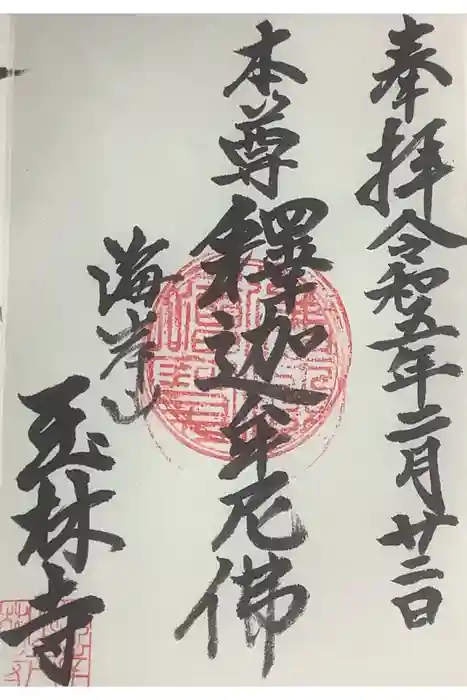 奉拝 令和五年二月廿二日
本尊 釋迦牟尼佛
海岸山
玉林寺